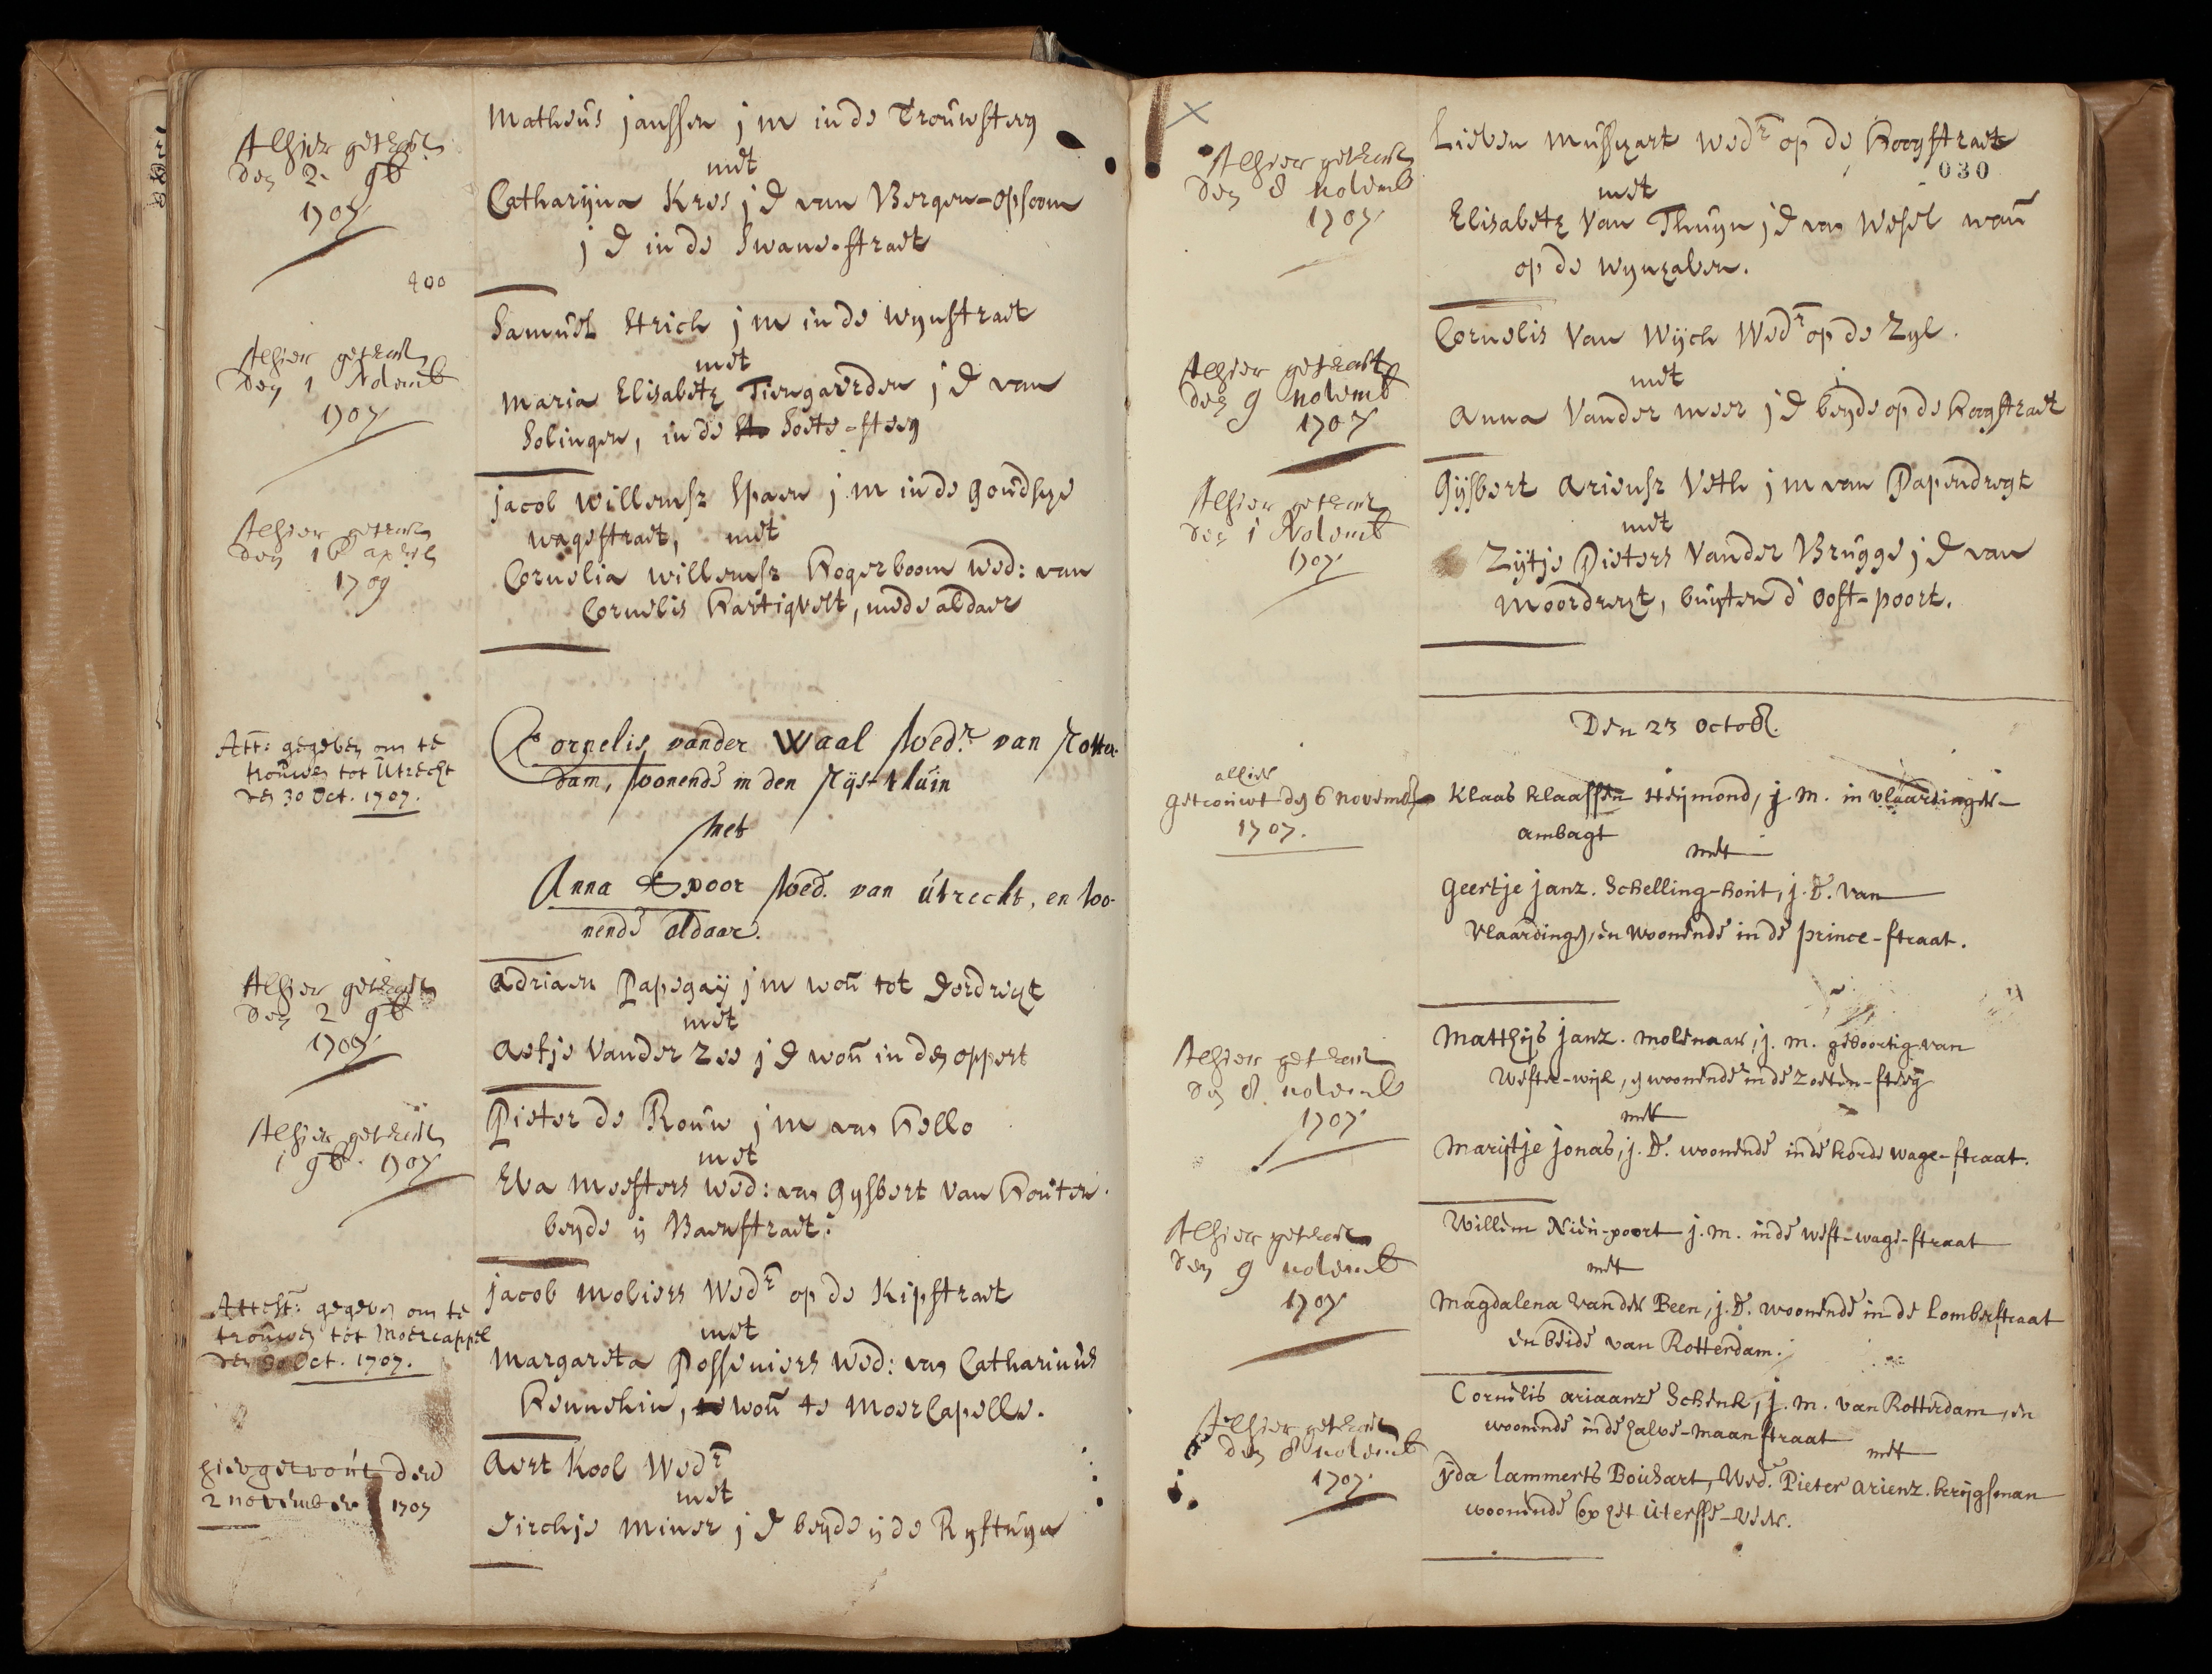 Alhier getrout
den 2. 9b
1707
Matheus janssen j m in de Trouwsteeg
met
Catharijna Kres j d van Bergen-opsoom
j d in de Swane-straet
400
Alhier getrout
den 1 Novemb
1707
Samuel Strich j m in de wynstraet
met
Maria Elisabeth Tiengaerden j d van
Solingen, in de Soete-steeg
Alhier getrout
den april
1709
jacob Willemsz Spaen j m in de Goudsze
wagestraet, met
Cornelia willemsz Hogerboom wed: van
Cornelis Hartigvelt, mede aldaer
Att: gegeven om te
trouwen tot Utrecht
den 30 Oct. 1707.
Cornelis vander Waal Wedr. van Rotter-
dam, woonende in den Rijs-tuin
met
Anna Spoor Wed. van utrecht, en woo-
nende aldaar.
Alhier getrout
den 2 9b
1707
Adriaen Papegaij j m won tot Dordregt
met
Aefje Vander Zee j d won in den oppert
Alhier getrout
1 9b. 1707
Pieter de Rouw j m van Hello
met
Eva Meesters wed: van Gysbert Van Houten.
beyde ij Baenstraet.
Attest: gegeven om te
trouwen tot Moercappel
den 30 Oct. 1707.
jacob Moliers Wedr op de Kipstraet
met
Margareta Posseniers wed: van Catharinus
Hennekin, won te MoerCapelle.
hier getrout den
2 november 1707
Aert Kool Wedr
met
Dirckje Miner j d beyde ij de Rystuyn
030
Alhier getrout
den 8 novemb
1707
Lieven Mussgart wedr op de Hoogstraet
met
Elisabeth Van Thuyn j d van Wesel won
op de wynhaven.
Alhier getrout
den 9 novemb
1707
Cornelis Van Wijck Wedr op de Zyl.
met
Anna Vander meer j d beyde op de Hoogstraet
Alhier getrout
den 1 Novemb
1707
Gijsbert Ariensz Veth j m van Papendregt
met
Zijtje Pieters Vander Brugge j d van
Moordregt, buyten d' Oost-poort.
Den 23 Octob.
alhier
getrouwt den 6 novemb
1707.
Klaas Klaassen Heijmond, j. m. in vlaardinger-
ambagt
met
Geertje janz. Schelling-hout, j. d. van
Vlaardingen, en woonende in de prince-straat.
Alhier getrout
den 8 novemb
1707
Matthijs janz. molenaar, j. m. geboortig van
Wester-wijk, en woonende in de zoeten-steeg
met
Marijtje jonas, j. d. woonende in de korde wage-straat.
Alhier getrout
den 9 novemb
1707
Willem Nieu-poort j. m. in de west-wage-straat
met
Magdalena van der Been, j. d. woonende in de Lombertstraat
en beide van Rotterdam.
Alhier getrout
den 8 novemb
1707
Cornelis ariaanze Schenk, j. m. van Rotterdam, en
woonende in de halve-maan straat met
ijda lammerts Bouhart, Wed. Pieter arienz. krijgsman
woonende op het Uterste-veer.